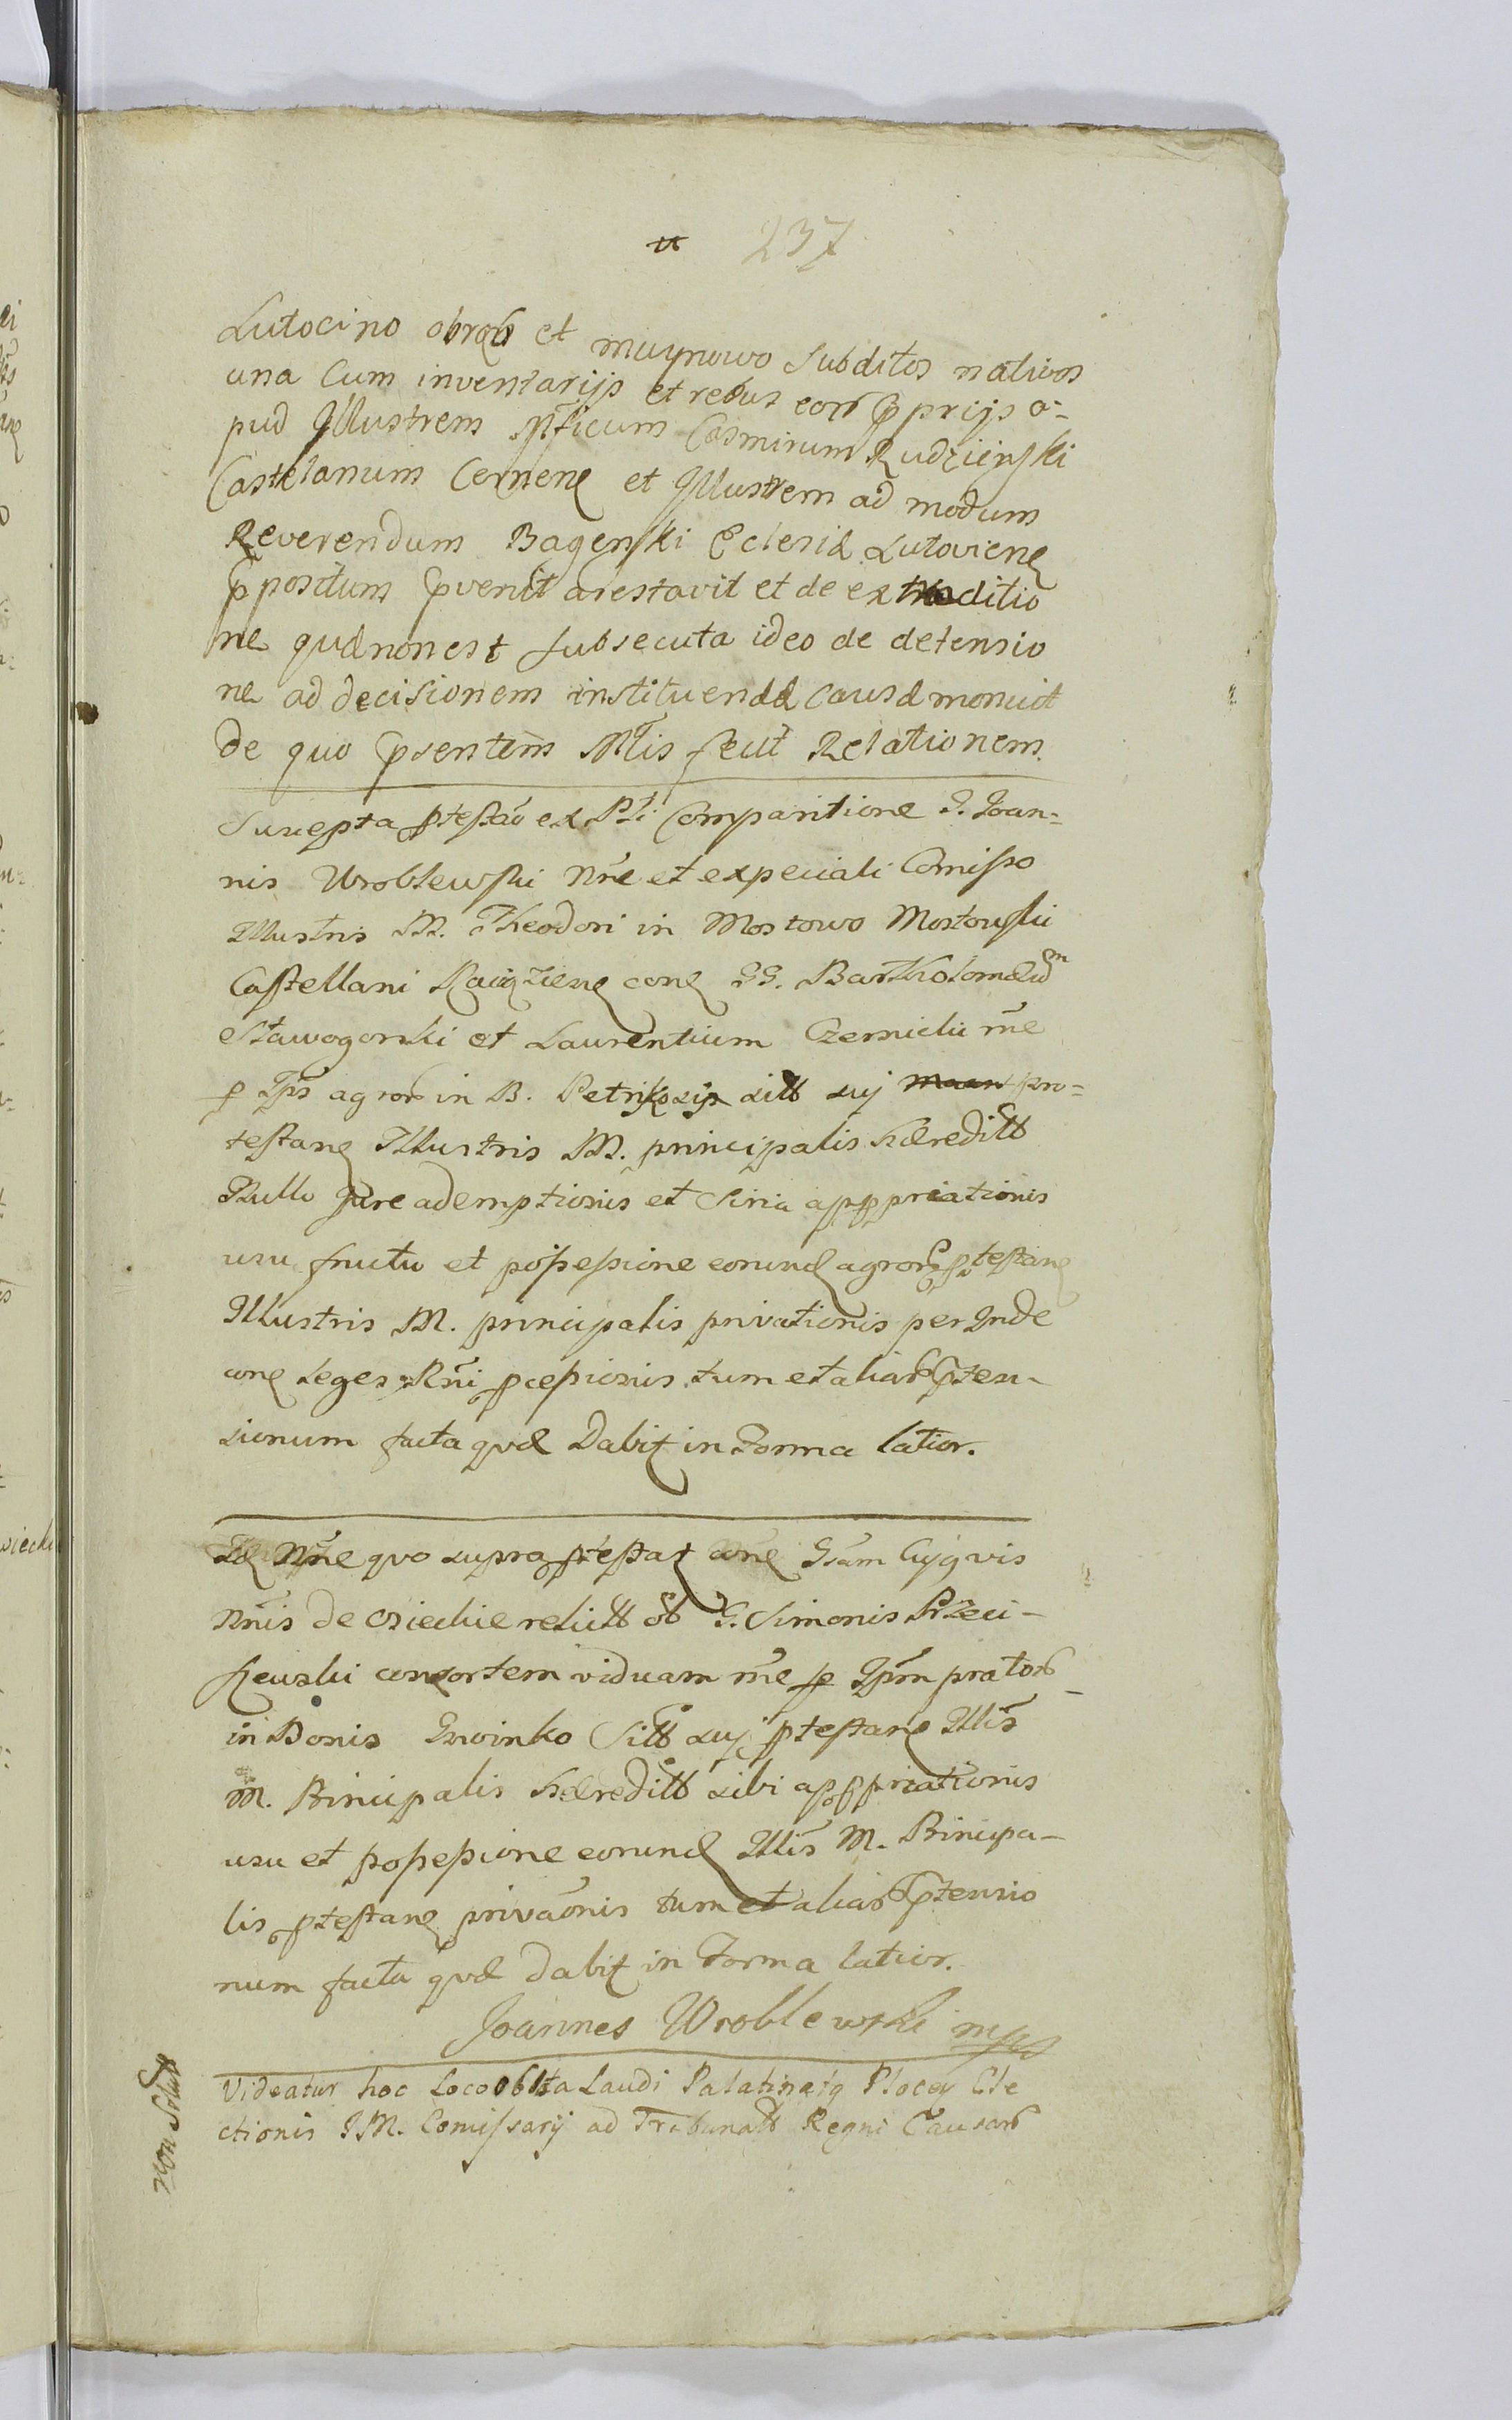 237
Lutocino obrąb et muynowo subditos nativos
una Cum inventarijs et rebus eorū pprijs a-
pud Jllustrem Mficum Casmirum Rudzienski
Castelanum Cernene et Jllustrem ad modum
Reverendum Bagenski Eclesiæ Lutoviene
ppositum pvenit arestavit et de extraditio
ne quænonest subsecuta ideo de detensio
ne ad decisionem instituendæ Causæ monuit
de quo psentem Mtis fecit Relationem.
Suscepta ptestao ex Pti Comparitione G. Joan-
nis Wroblewski Nne et expeciali Comisso
Illustris M. Theodori in Mostowo Mostowski
Castellani Raciąziene cone GG. Bartholomæum
Stawogorski et Laurentium Czernicki me
p Tps agror in B. Petrikozÿ sitt suÿ pro-
testane Illustris M. principalis hæreditt
Nullo Jure ademptionis et Sinia apppriationis
usu fructu et possessione eorund agror ptestane
Illustris M. principalis privationis per Jnde
cone Leges Rni pcessionis tum et aliar pten-
sionum facta quæ Dabit in Forma latior.
Id Nne quo supra ptestat cone Gsam
Nnis de Osieckie relictt ob G. Simonis Przeci-
szewski consortem viduam me p Tpm prator
in Bonis Gwinko Sitt suÿ ptestane Illis
M. Principalis hæreditt sibi apppriationis
usu et possessione eorund Illis M. Principa-
lis ptestane privaonis tum et aliar ptensio
num facta quæ Dabit in Forma latior.
Joannes Wroblewski mpp
Videatur hoc Loco Oblta Laudi Palatinatq Plocen Ele
ctionis JM. Comissarij ad Tribunalt Regni Causar
Non Solutt